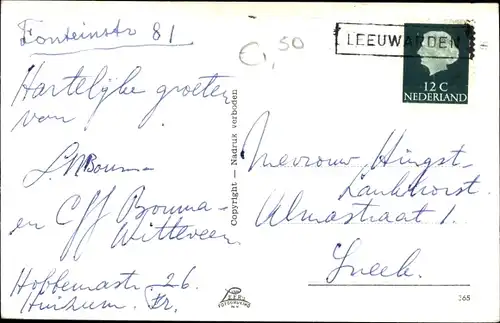 Fonteinstr 81
Hartelijke groeten
van
Bouma
en Bouma-
Witteveen
Hobbemastr. 26.
Huizum. Fr.
€1,50
Copyright — Nadruk verboden
LEEUWARDEN
12 C
NEDERLAND
Mevrouw Hingst-
Lankhorst.
Almastraat 1.
Sneek.
365